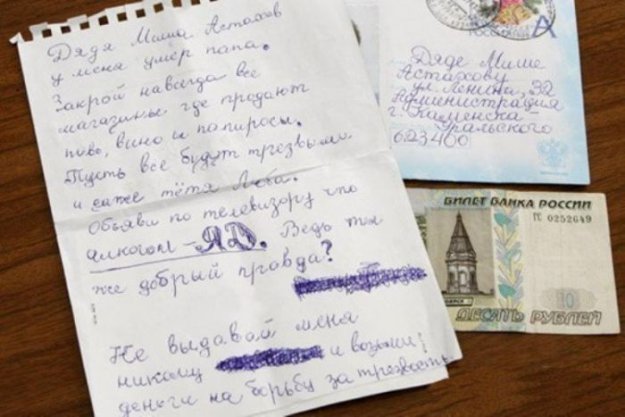 Дядя Миша Астахов
у меня умер папа.
Закрой навсегда все
магазины где продают
пиво, вино и папиросы.
Пусть все будут трезвыми
и даже тётя Люба.
Объяви по телевизору что
алкоголь - ЯД. Ведь ты
же добрый правда?
Не выдавай меня
никому и возьми
деньги на борьбу за трезвость
А
Дяде Мише
Астахову
ул. Ленина, 32
Администрация
г. Каменска-
Уральского
623400
БИЛЕТ БАНКА РОССИИ
ГС 0252649
10
ДЕСЯТЬ РУБЛЕЙ